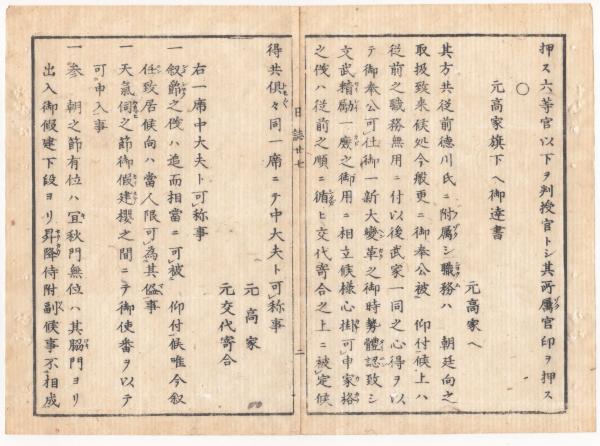 押ス六等官以下ヲ判授官トシ其所屬官印ヲ押ス
○
元高家旗下ヘ御達書
元高家ヘ
其方共從前德川氏ニ附屬シ職務ハ 朝廷向之
取扱致来候処今般更ニ御奉公被 仰付候上ハ
從前之職務無用ニ付以後武家一同之心得ヲ以
テ御奉公可仕御一新大變革之御時勢體認致シ
文武精勵一廉之御用ニ相立候様心掛可申家格
之儀ハ從前之順ニ循ヒ交代寄合之上ニ被定候
日誌廿七
二
得共俱々同一席ニテ中大夫ト可称事
元高家
元交代寄合
右一席中大夫ト可称事
一 叙爵之儀ハ追而相當ニ可被 仰付候唯今叙
任致居候向ハ當人限可為其儘事
一 天氣伺之節御假建櫻之間ニテ御使番ヲ以テ
可申入事
一 参 朝之節有位ハ宜秋門無位ハ其脇門ヨリ
出入御假建下段ヨリ昇降侍附副候事不相成